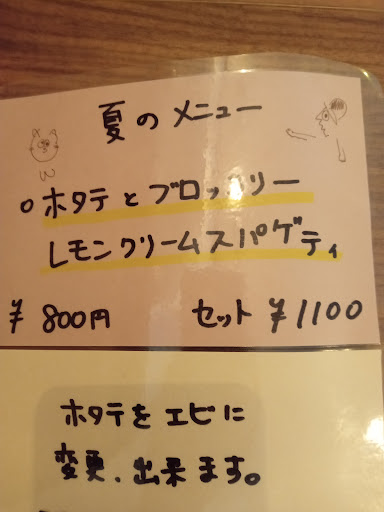 夏のメニュー
○ホタテとブロッコリー
レモンクリームスパゲティ
¥ 800円 セット ¥1100
ホタテをエビに
変更、出来ます。